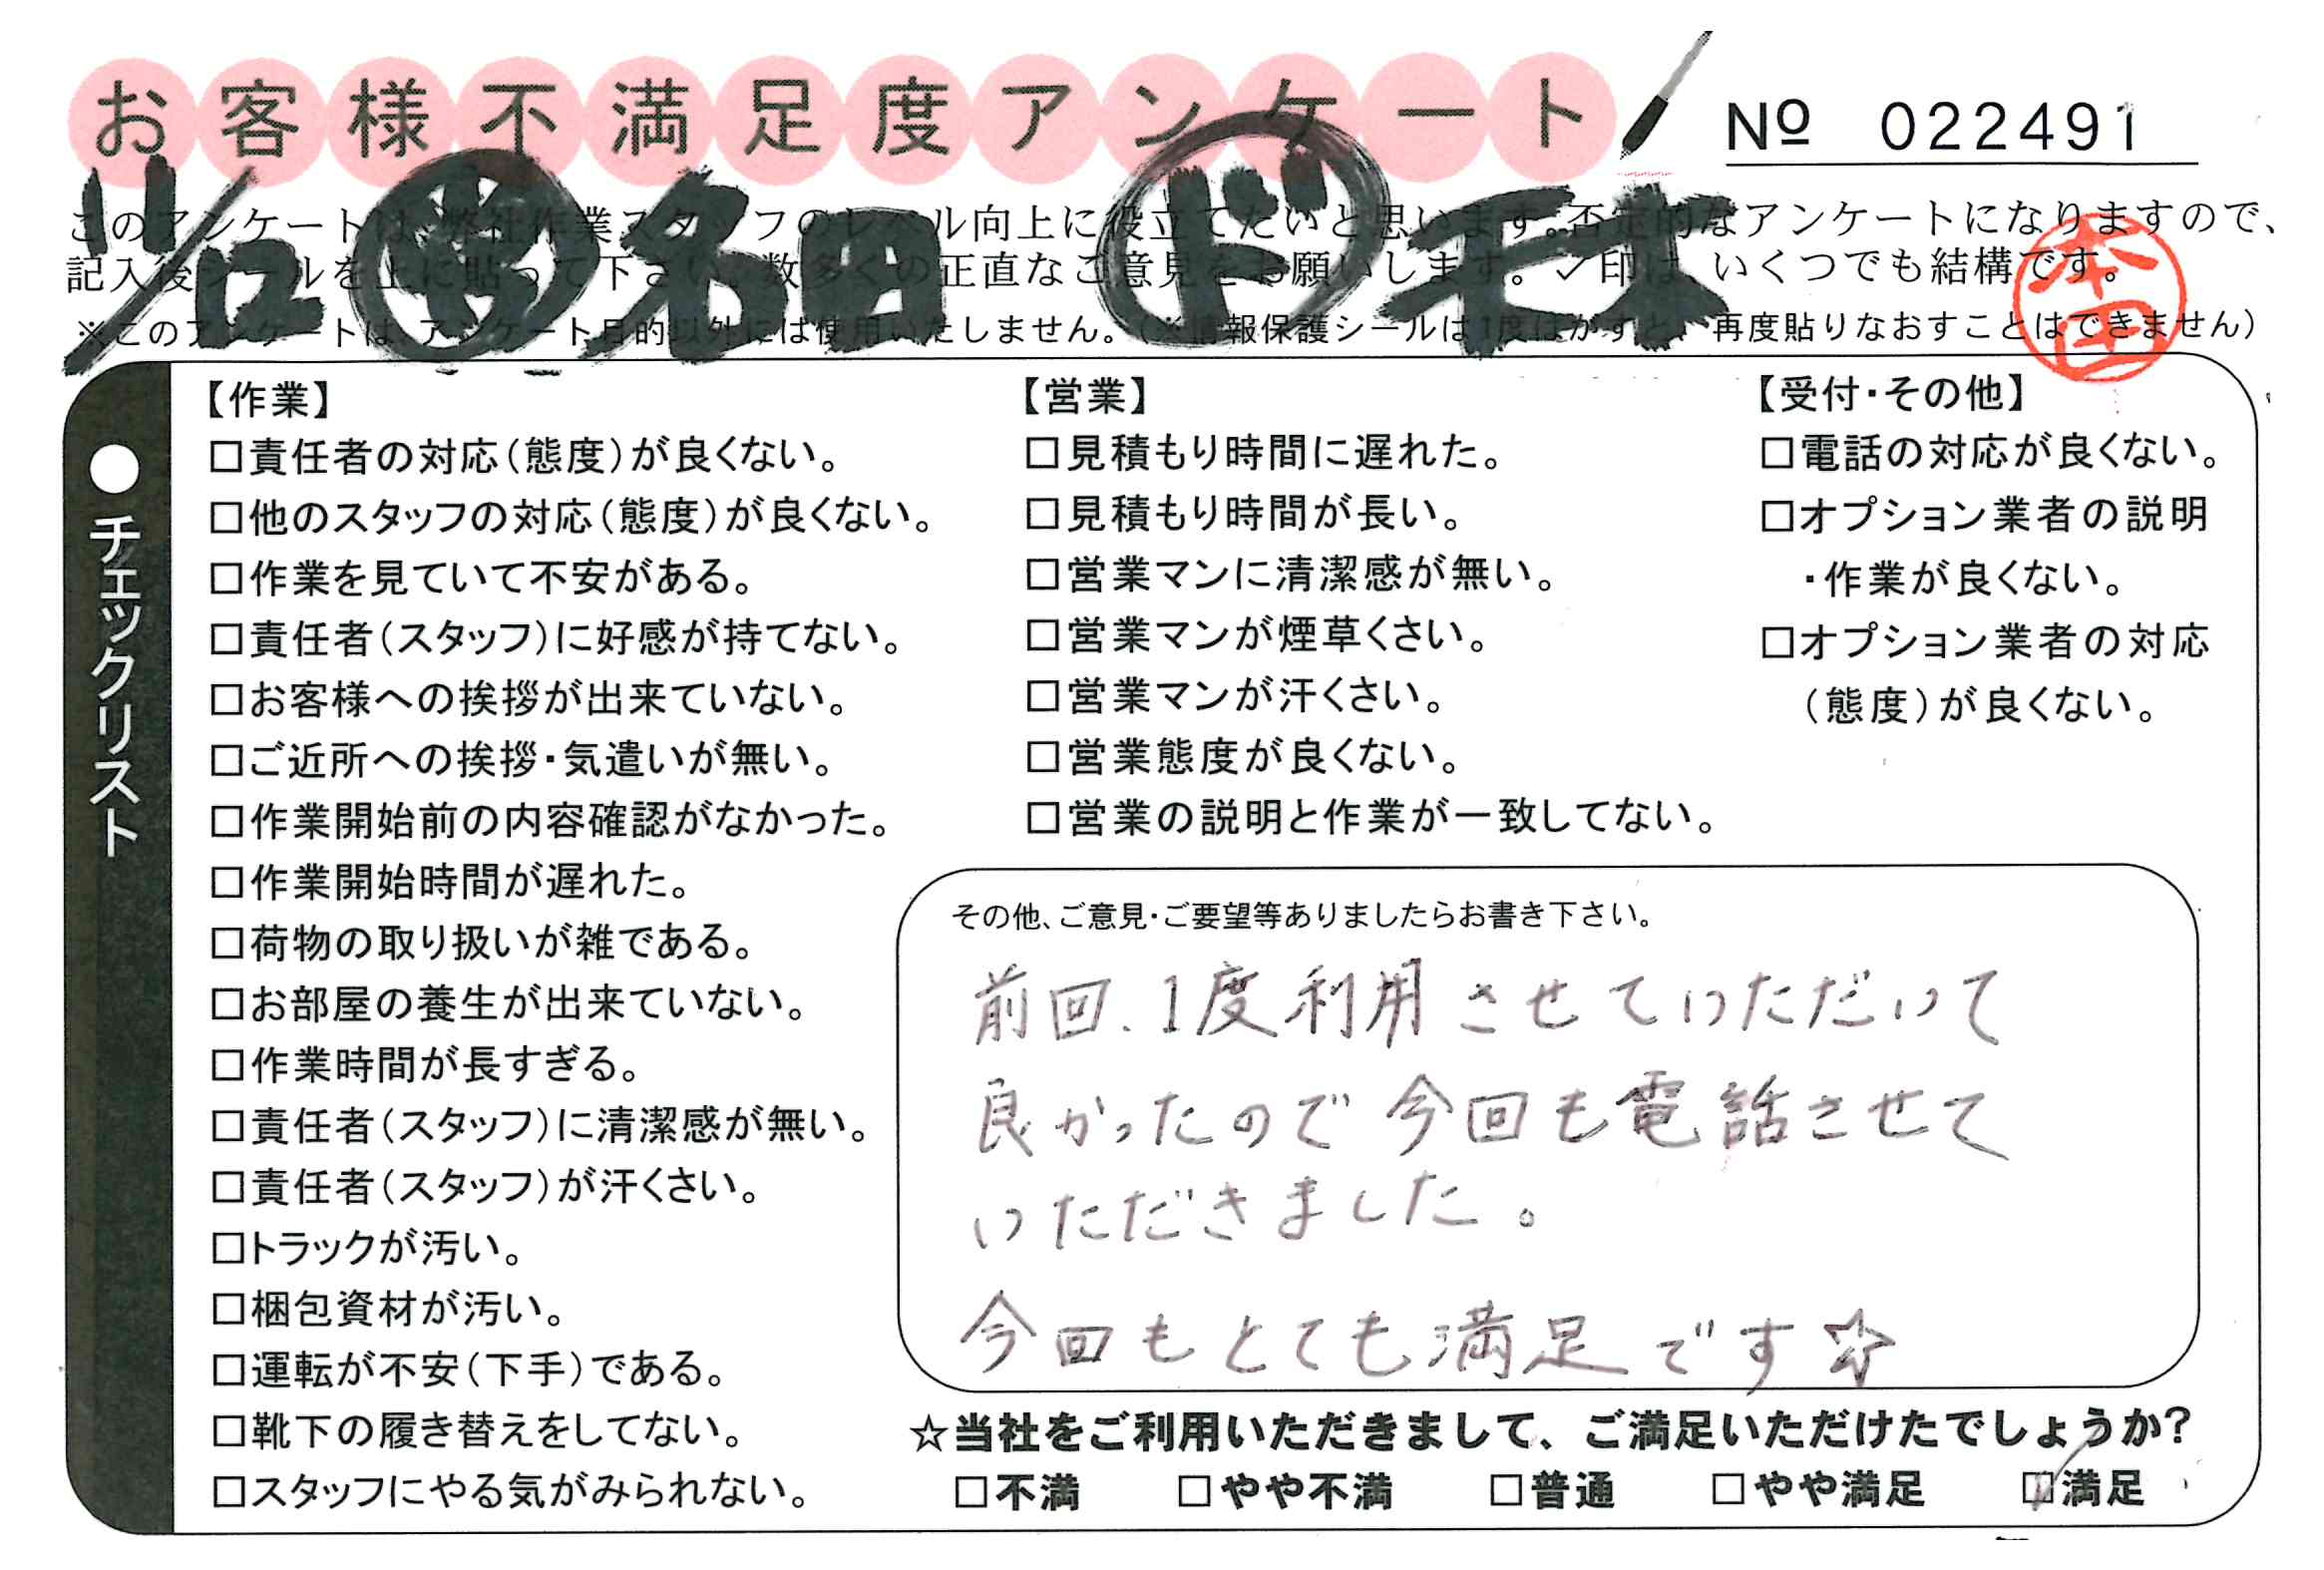 お客様不満足度アンケート
№ 022491
11/12 名田 ド
このアンケートは、弊社作業スタッフのレベル向上に役立てたいと思います。否定的なアンケートになりますので、
記入後シールを上に貼って下さい。数多くの正直なご意見をお願いします。✓印は、いくつでも結構です。
※このアンケートは、アンケート目的以外には使用いたしません。（※情報保護シールは1度はがすと、再度貼りなおすことはできません）
本田
●チェックリスト
【作業】
□責任者の対応（態度）が良くない。
□他のスタッフの対応（態度）が良くない。
□作業を見ていて不安がある。
□責任者（スタッフ）に好感が持てない。
□お客様への挨拶が出来ていない。
□ご近所への挨拶・気遣いが無い。
□作業開始前の内容確認がなかった。
□作業開始時間が遅れた。
□荷物の取り扱いが雑である。
□お部屋の養生が出来ていない。
□作業時間が長すぎる。
□責任者（スタッフ）に清潔感が無い。
□責任者（スタッフ）が汗くさい。
□トラックが汚い。
□梱包資材が汚い。
□運転が不安（下手）である。
□靴下の履き替えをしてない。
□スタッフにやる気がみられない。
【営業】
□見積もり時間に遅れた。
□見積もり時間が長い。
□営業マンに清潔感が無い。
□営業マンが煙草くさい。
□営業マンが汗くさい。
□営業態度が良くない。
□営業の説明と作業が一致してない。
【受付・その他】
□電話の対応が良くない。
□オプション業者の説明
・作業が良くない。
□オプション業者の対応
（態度）が良くない。
その他、ご意見・ご要望等ありましたらお書き下さい。
前回、1度利用させていただいて
良かったので今回も電話させて
いただきました。
今回もとても満足です☆
☆当社をご利用いただきまして、ご満足いただけたでしょうか?
□不満 □やや不満 □普通 □やや満足 ☑満足